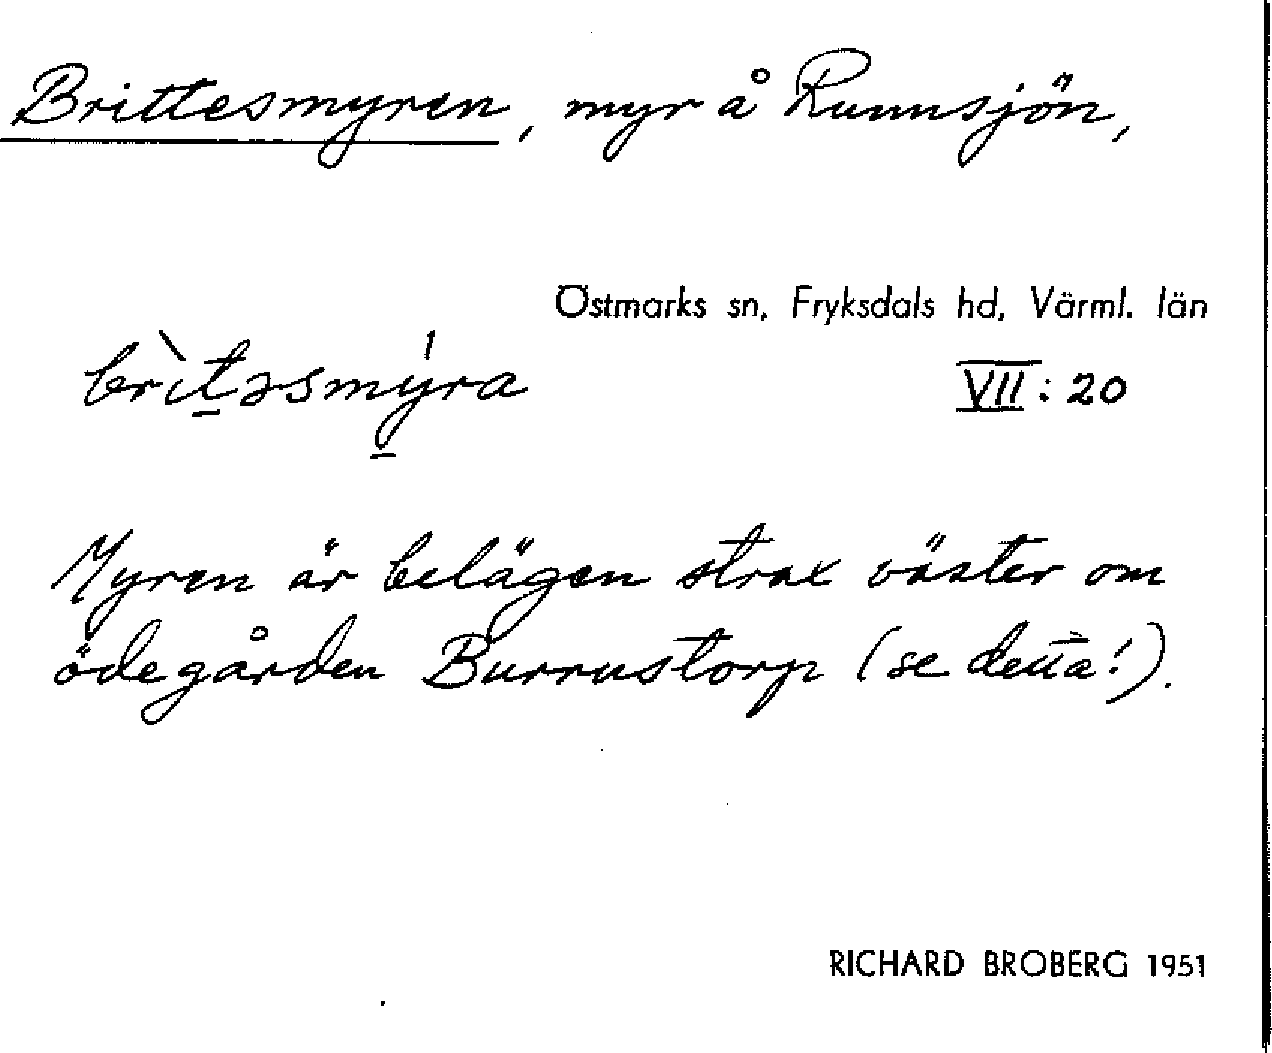 Brittesmyren, myr å Runnsjön,
Östmarks sn, Fryksdals hd, Värml. län
brìt̲əsmý̲ra
VII: 20
Myren är belägen strax väster om
ödegården Burrustorp (se detta!).
RICHARD BROBERG 1951